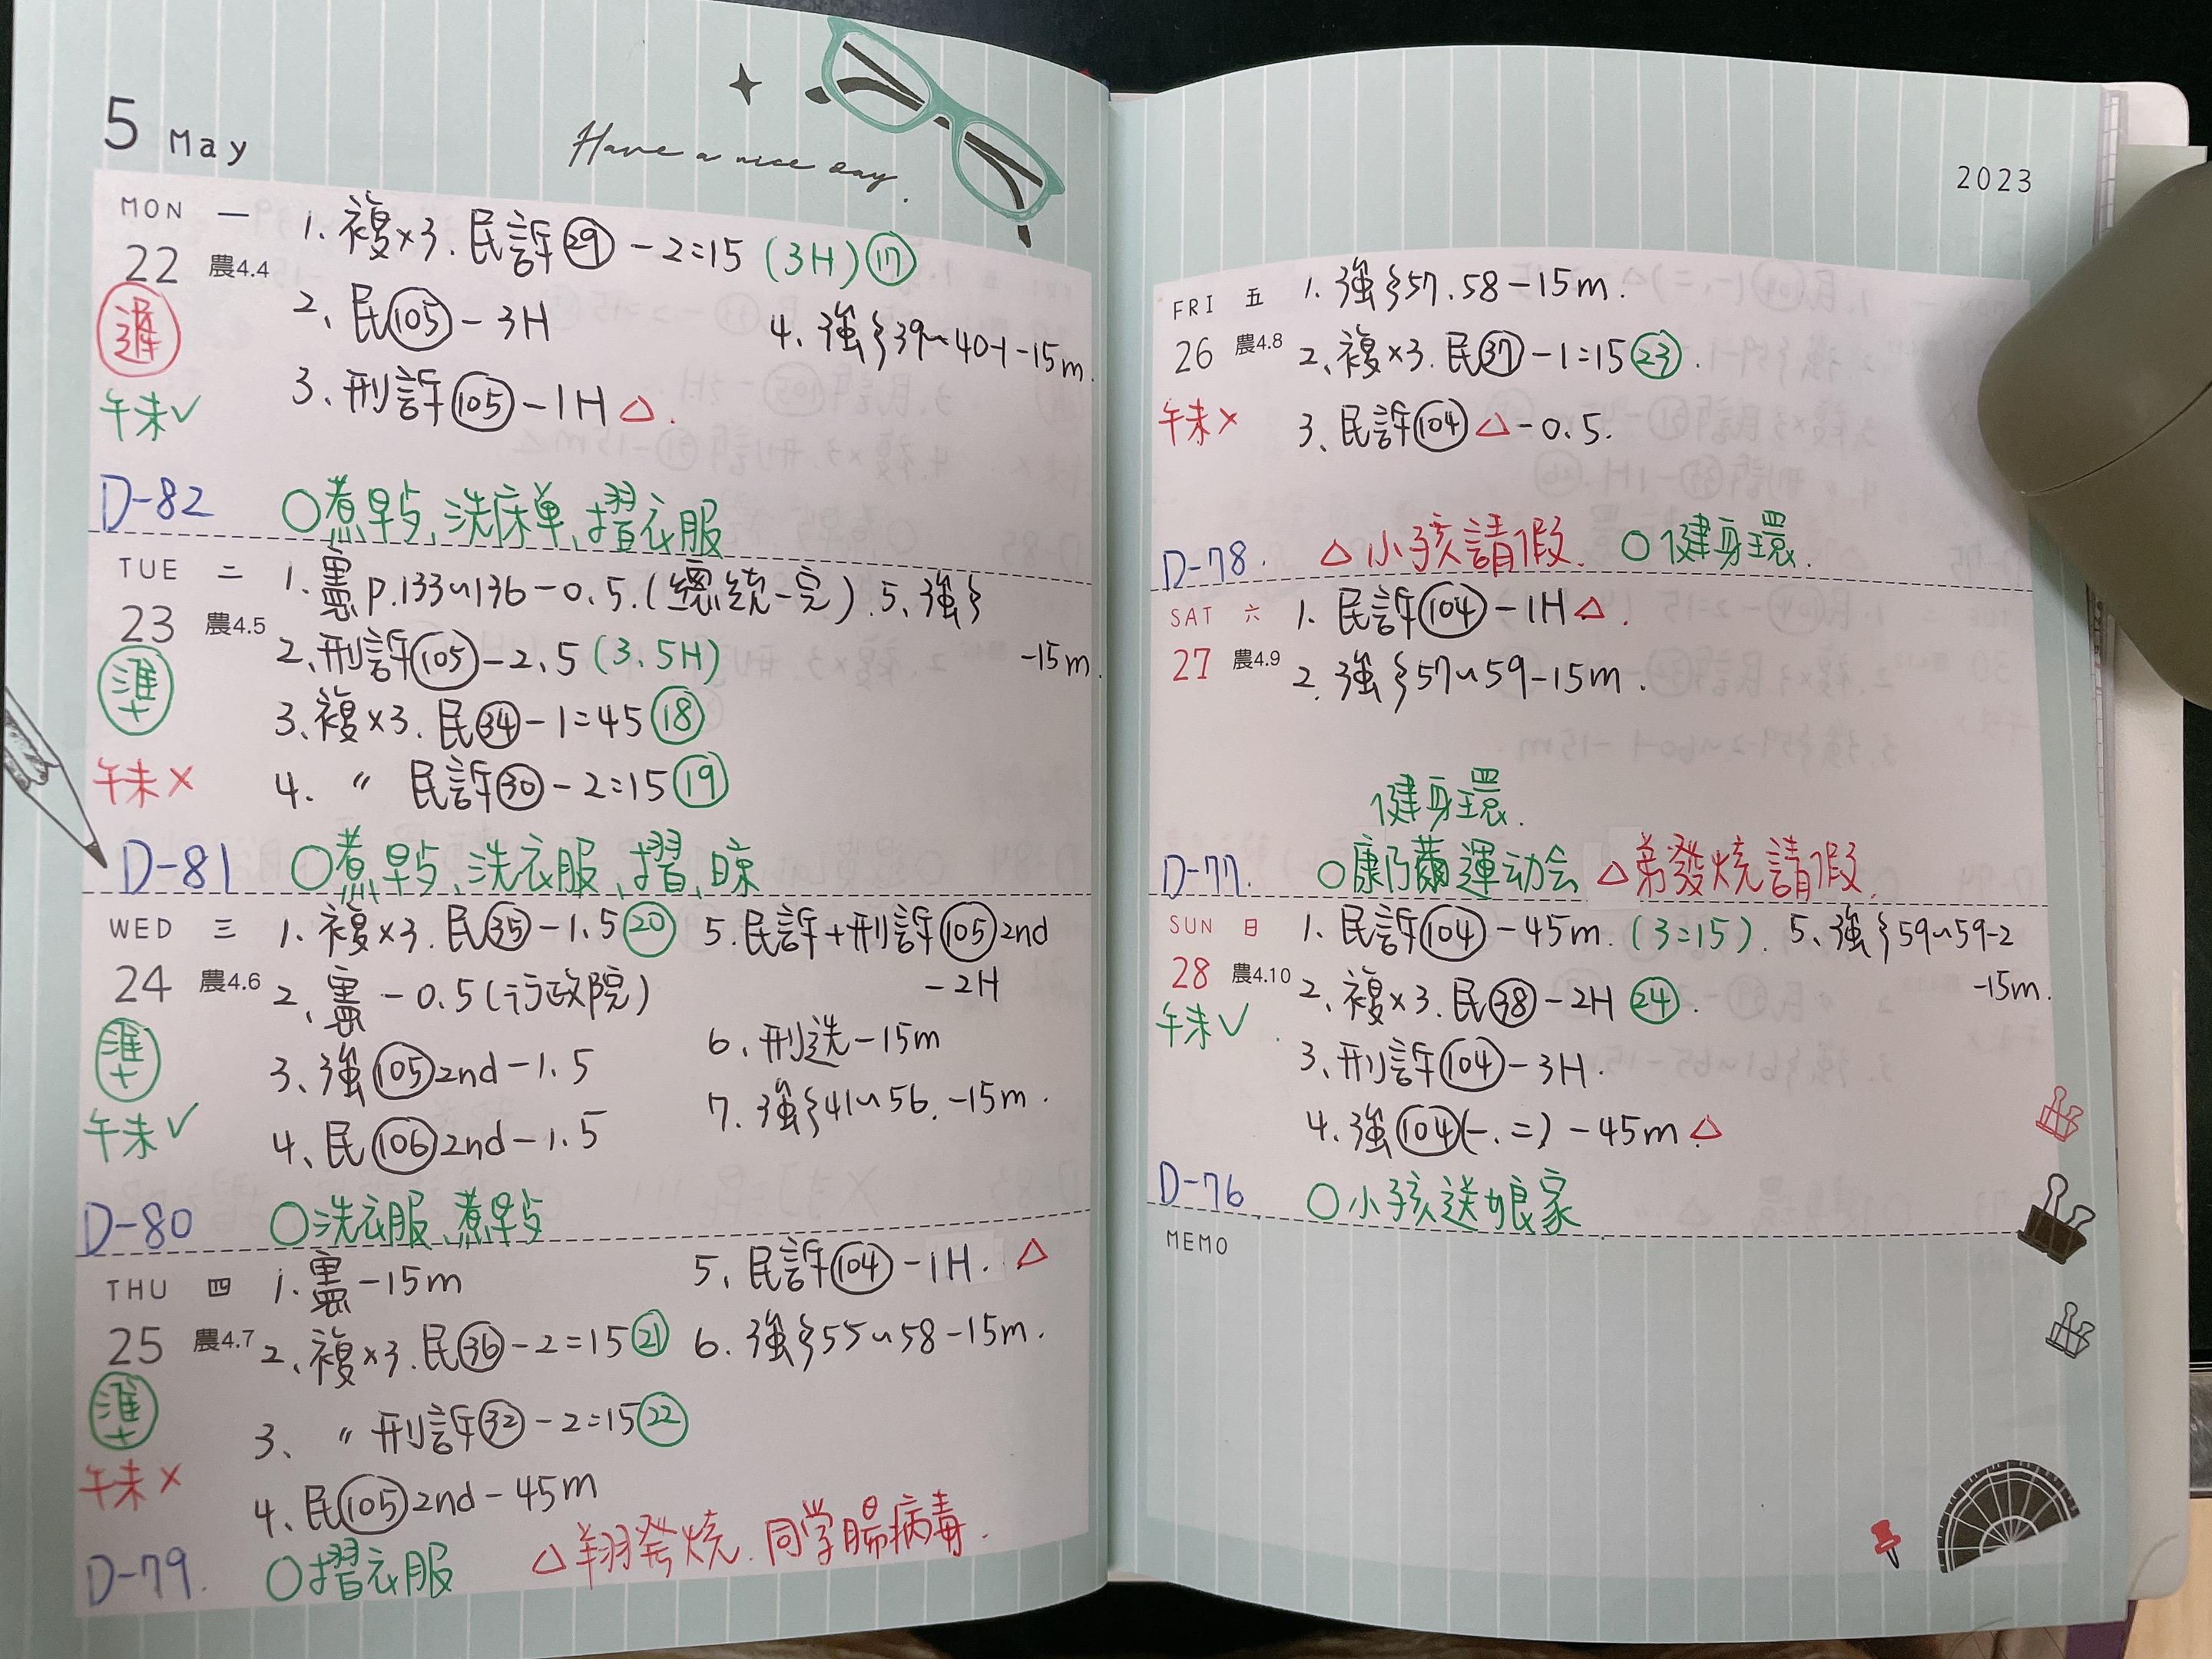 5 May
Have a nice day.
MON 一
22 農4.4
遲
午未✓
D-82
1. 複×3. 民訴㉙ - 2=15 (3H) ⑰
2、民(105) - 3H
3. 刑訴(105) - 1H △.
4. 強§39~40-1 -15m.
○煮早点、洗床单、摺衣服
TUE 二
23 農4.5
準+
午未×
D-81
1. 憲 p.133~136 - 0.5. (總統-完). 5、強§
-15m.
2、刑訴(105) - 2.5 (3.5H)
3. 複×3. 民㉞ - 1=45 ⑱
4. 〃 民訴㉚ - 2=15 ⑲
○煮早点、洗衣服、摺、晾
WED 三
24 農4.6
準+
午未✓
D-80
1. 複×3. 民㉟ - 1.5 ⑳
2、憲 - 0.5 (行政院)
3、強(105) 2nd - 1.5
4、民(106) 2nd - 1.5
5. 民訴+刑訴(105) 2nd
- 2H
6、刑选 - 15m
7. 強§41~56. -15m.
○洗衣服、煮早点
THU 四
25 農4.7
準+
午未×
D-79.
1. 憲 - 15m
2、複×3. 民㊱ - 2=15 ㉑
3、〃 刑訴㉜ - 2=15 ㉒
4、民(105) 2nd - 45m
5、民訴(104) - 1H. △
6. 強§55~58 - 15m.
○摺衣服 △翔発烧. 同学腸病毒.
2023
FRI 五
26 農4.8
午未×
D-78.
1. 強§57.58 - 15m.
2、複×3. 民㊲ - 1=15 ㉓.
3、民訴(104) △ - 0.5.
△小孩請假. ○健身環.
SAT 六
27 農4.9
D-77.
1. 民訴(104) - 1H △.
2. 強§57~59 - 15m.
健身環.
○康乃薾運动会 △弟發烧請假.
SUN 日
28 農4.10
午未✓
D-76
1. 民訴(104) - 45m. (3=15). 5、強§59~59-2
-15m.
2、複×3. 民㊳ - 2H ㉔.
3、刑訴(104) - 3H.
4. 強(104)(一.二) - 45m △
○小孩送娘家
MEMO